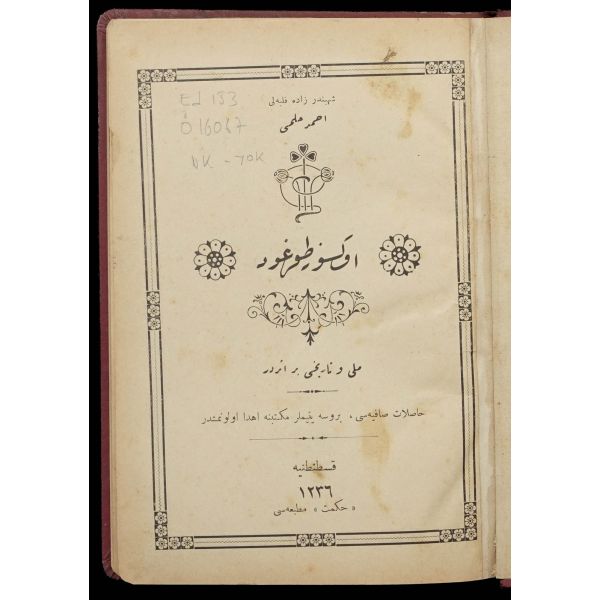 Ed 133
Ö 16067
شهبندر زاده فلبه‌لی
احمد حلمی
اوكسوز طورغود
ملی و تاریخی بر اثردر
حاصلات صافیه‌سی ، بروسه یتیملر مكتبنه اهدا اولونمشدر
قسطنطنیه
١٢٣٦
« حكمت » مطبعه‌سی